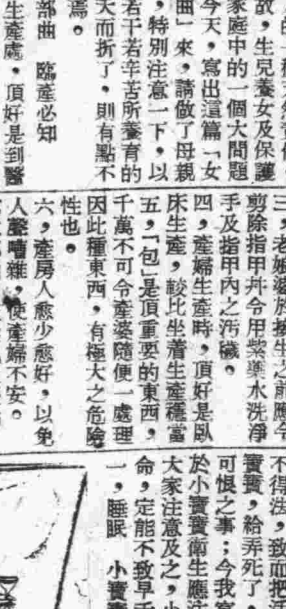 的一種天然責任
故，生兒養女及保護
家庭中的一個大問題
今天，寫出這篇「女
曲」來，請做了母親
，特別注意一下，以
若干若辛苦所養育的
天而折了，則有點不
焉。
部曲　臨產必知
生產處，頂好是到醫
三，老娘婆於接生之前應令
剪除指甲幷令用紫藥水洗淨
手及指甲內之汚穢。
四，產婦生產時，頂好是臥
床生產，較比坐着生產穩當
五，「包」是頂重要的東西，
千萬不可令產婆隨便一處理
因此種東西，有極大之危險
性也。
六，產房人愈少愈好，以免
人聲嘈雜，使產婦不安。
不得法，致而把
寶寶，給弄死了
可恨之事；今我
於小寶寶衛生應
大家注意及之，
命，定能不致早
一，睡眠　小寶